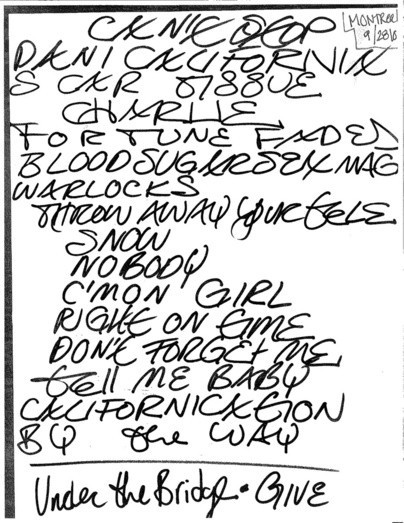 CAN'T STOP
MONTREAL
9/23/06
DANI CALIFORNIA
SCAR TISSUE
CHARLIE
FORTUNE FADED
BLOODSUGARSEXMAG
WARLOCKS
THROW AWAY YOUR TELE
SNOW
NOBODY
C'MON GIRL
RIGHT ON TIME
DON'T FORGET ME
Tell ME BABY
CALIFORNICATION
BY the WAY
Under the Bridge • GIVE